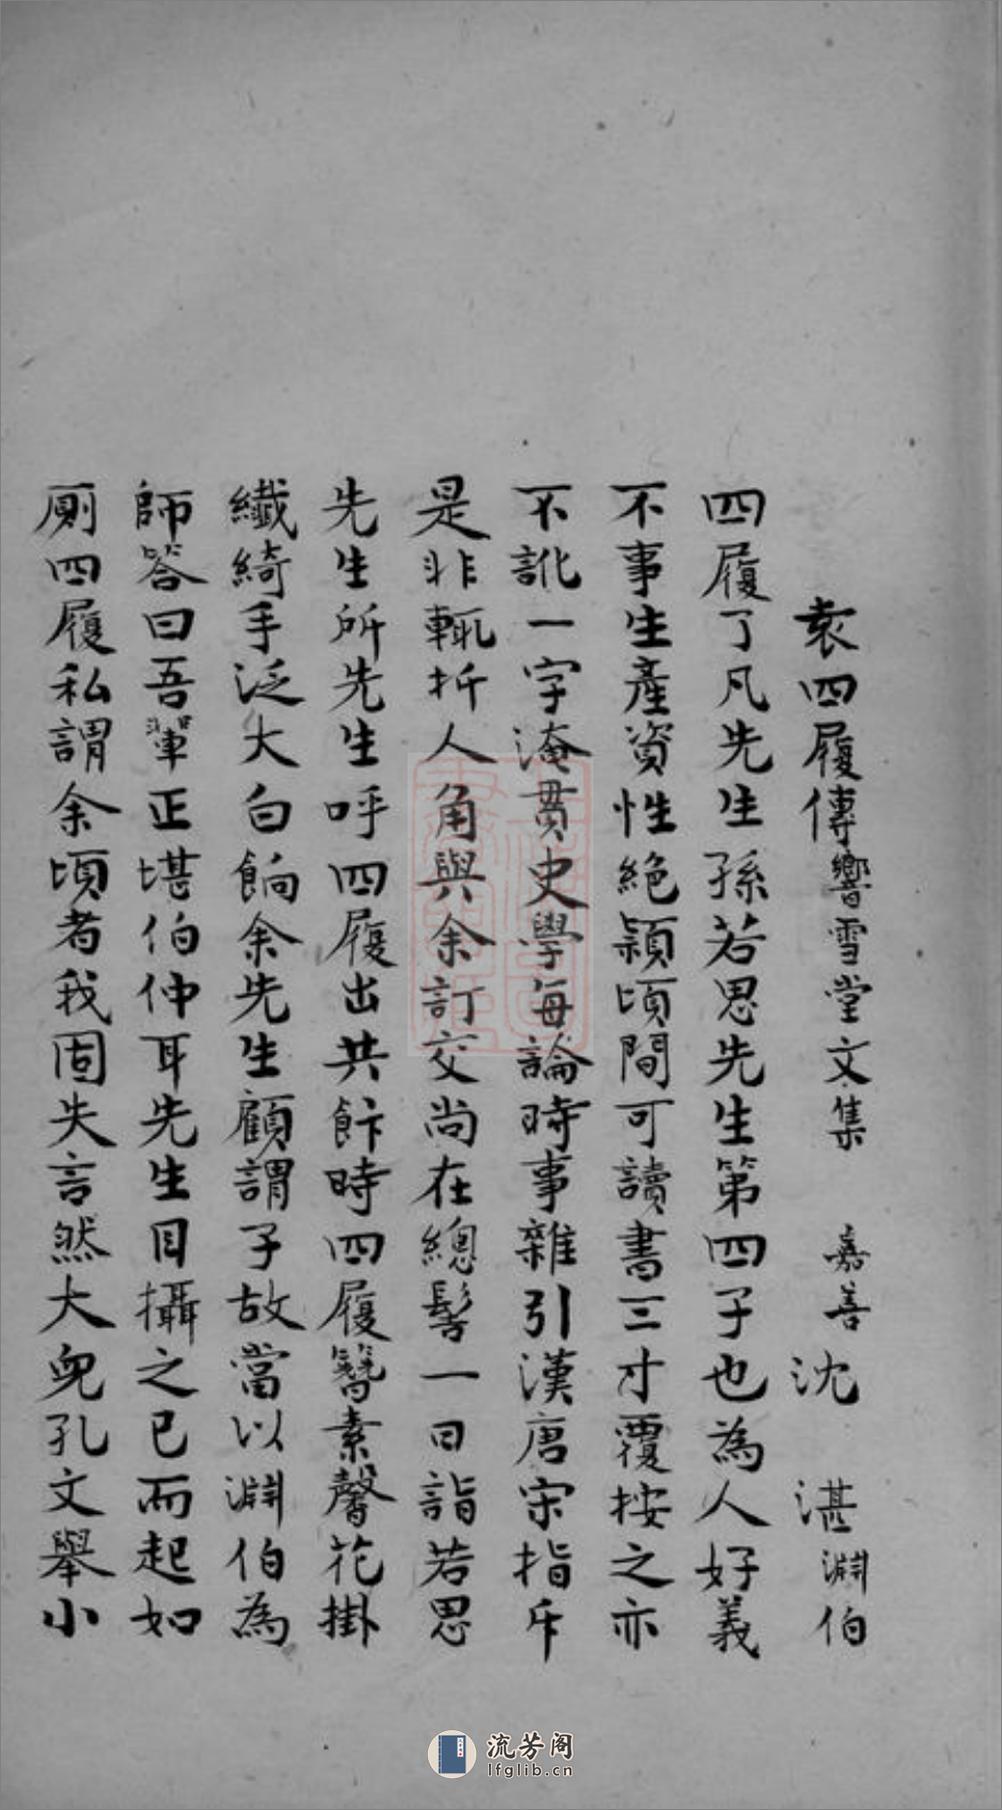 袁四履傳響雪堂文集 嘉善沈湛淵伯
四履了凡先生孫若思先生第四子也為人好義
不事生產資性絕穎頃間可讀書三寸覆按之亦
不訛一字淹貫史學每論時事雜引漢唐宋指斥
是非輒折人角與余訂交尚在總髫一日詣若思
先生所先生呼四履出共飰時四履簪素馨花掛
纖綺手泛大白餉余先生顧謂子故當以淵伯為
師答曰吾輩正堪伯仲耳先生目攝之已而起如
厠四履私謂余頃者我固失言然大兒孔文舉小
流芳阁
lfglib.cn